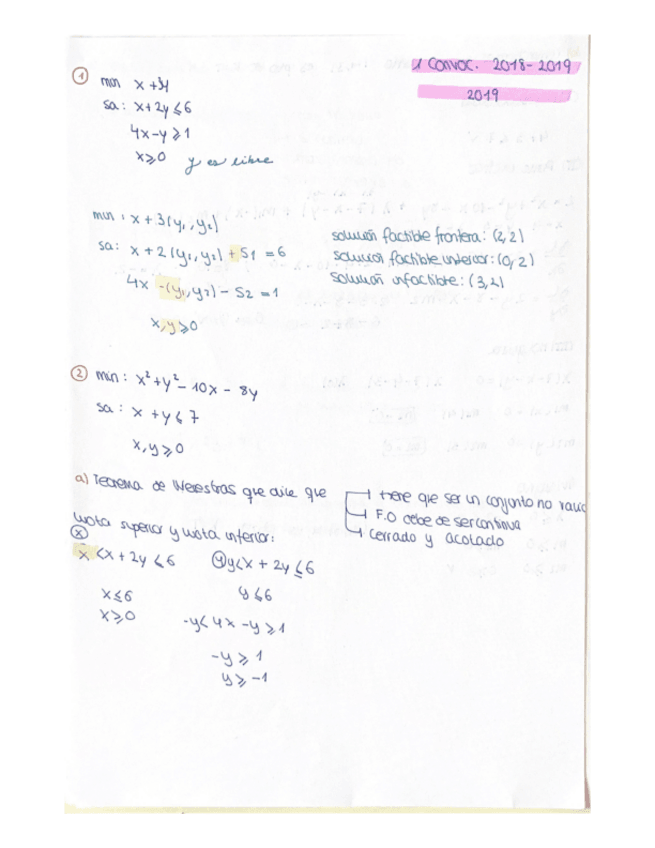 1 CONVOC. 2018-2019
2019
① min x+3y
sa: x+2y ≤ 6
4x-y ≥ 1
x ≥ 0 y es libre
min: x + 3(y1, y2)
sa: x + 2(y1, y2) + S1 = 6
4x -(y1, y2) - S2 = 1
x, y ≥ 0
solución factible frontera: (2,2)
solución factible interior: (0,2)
solución infactible: (3,2)
② min: x² + y² - 10x - 8y
sa: x + y ≤ 7
x, y ≥ 0
a) Teorema de Weiestras que dice que
tiene que ser un conjunto no vacío
F.O debe de ser continua
cerrado y acotado
cota superior y cota inferior:
ⓧ
x < x + 2y ≤ 6
x ≤ 6
x ≥ 0
ⓨ y < x + 2y ≤ 6
y ≤ 6
-y < 4x - y ≥ 1
-y ≥ 1
y ≥ -1